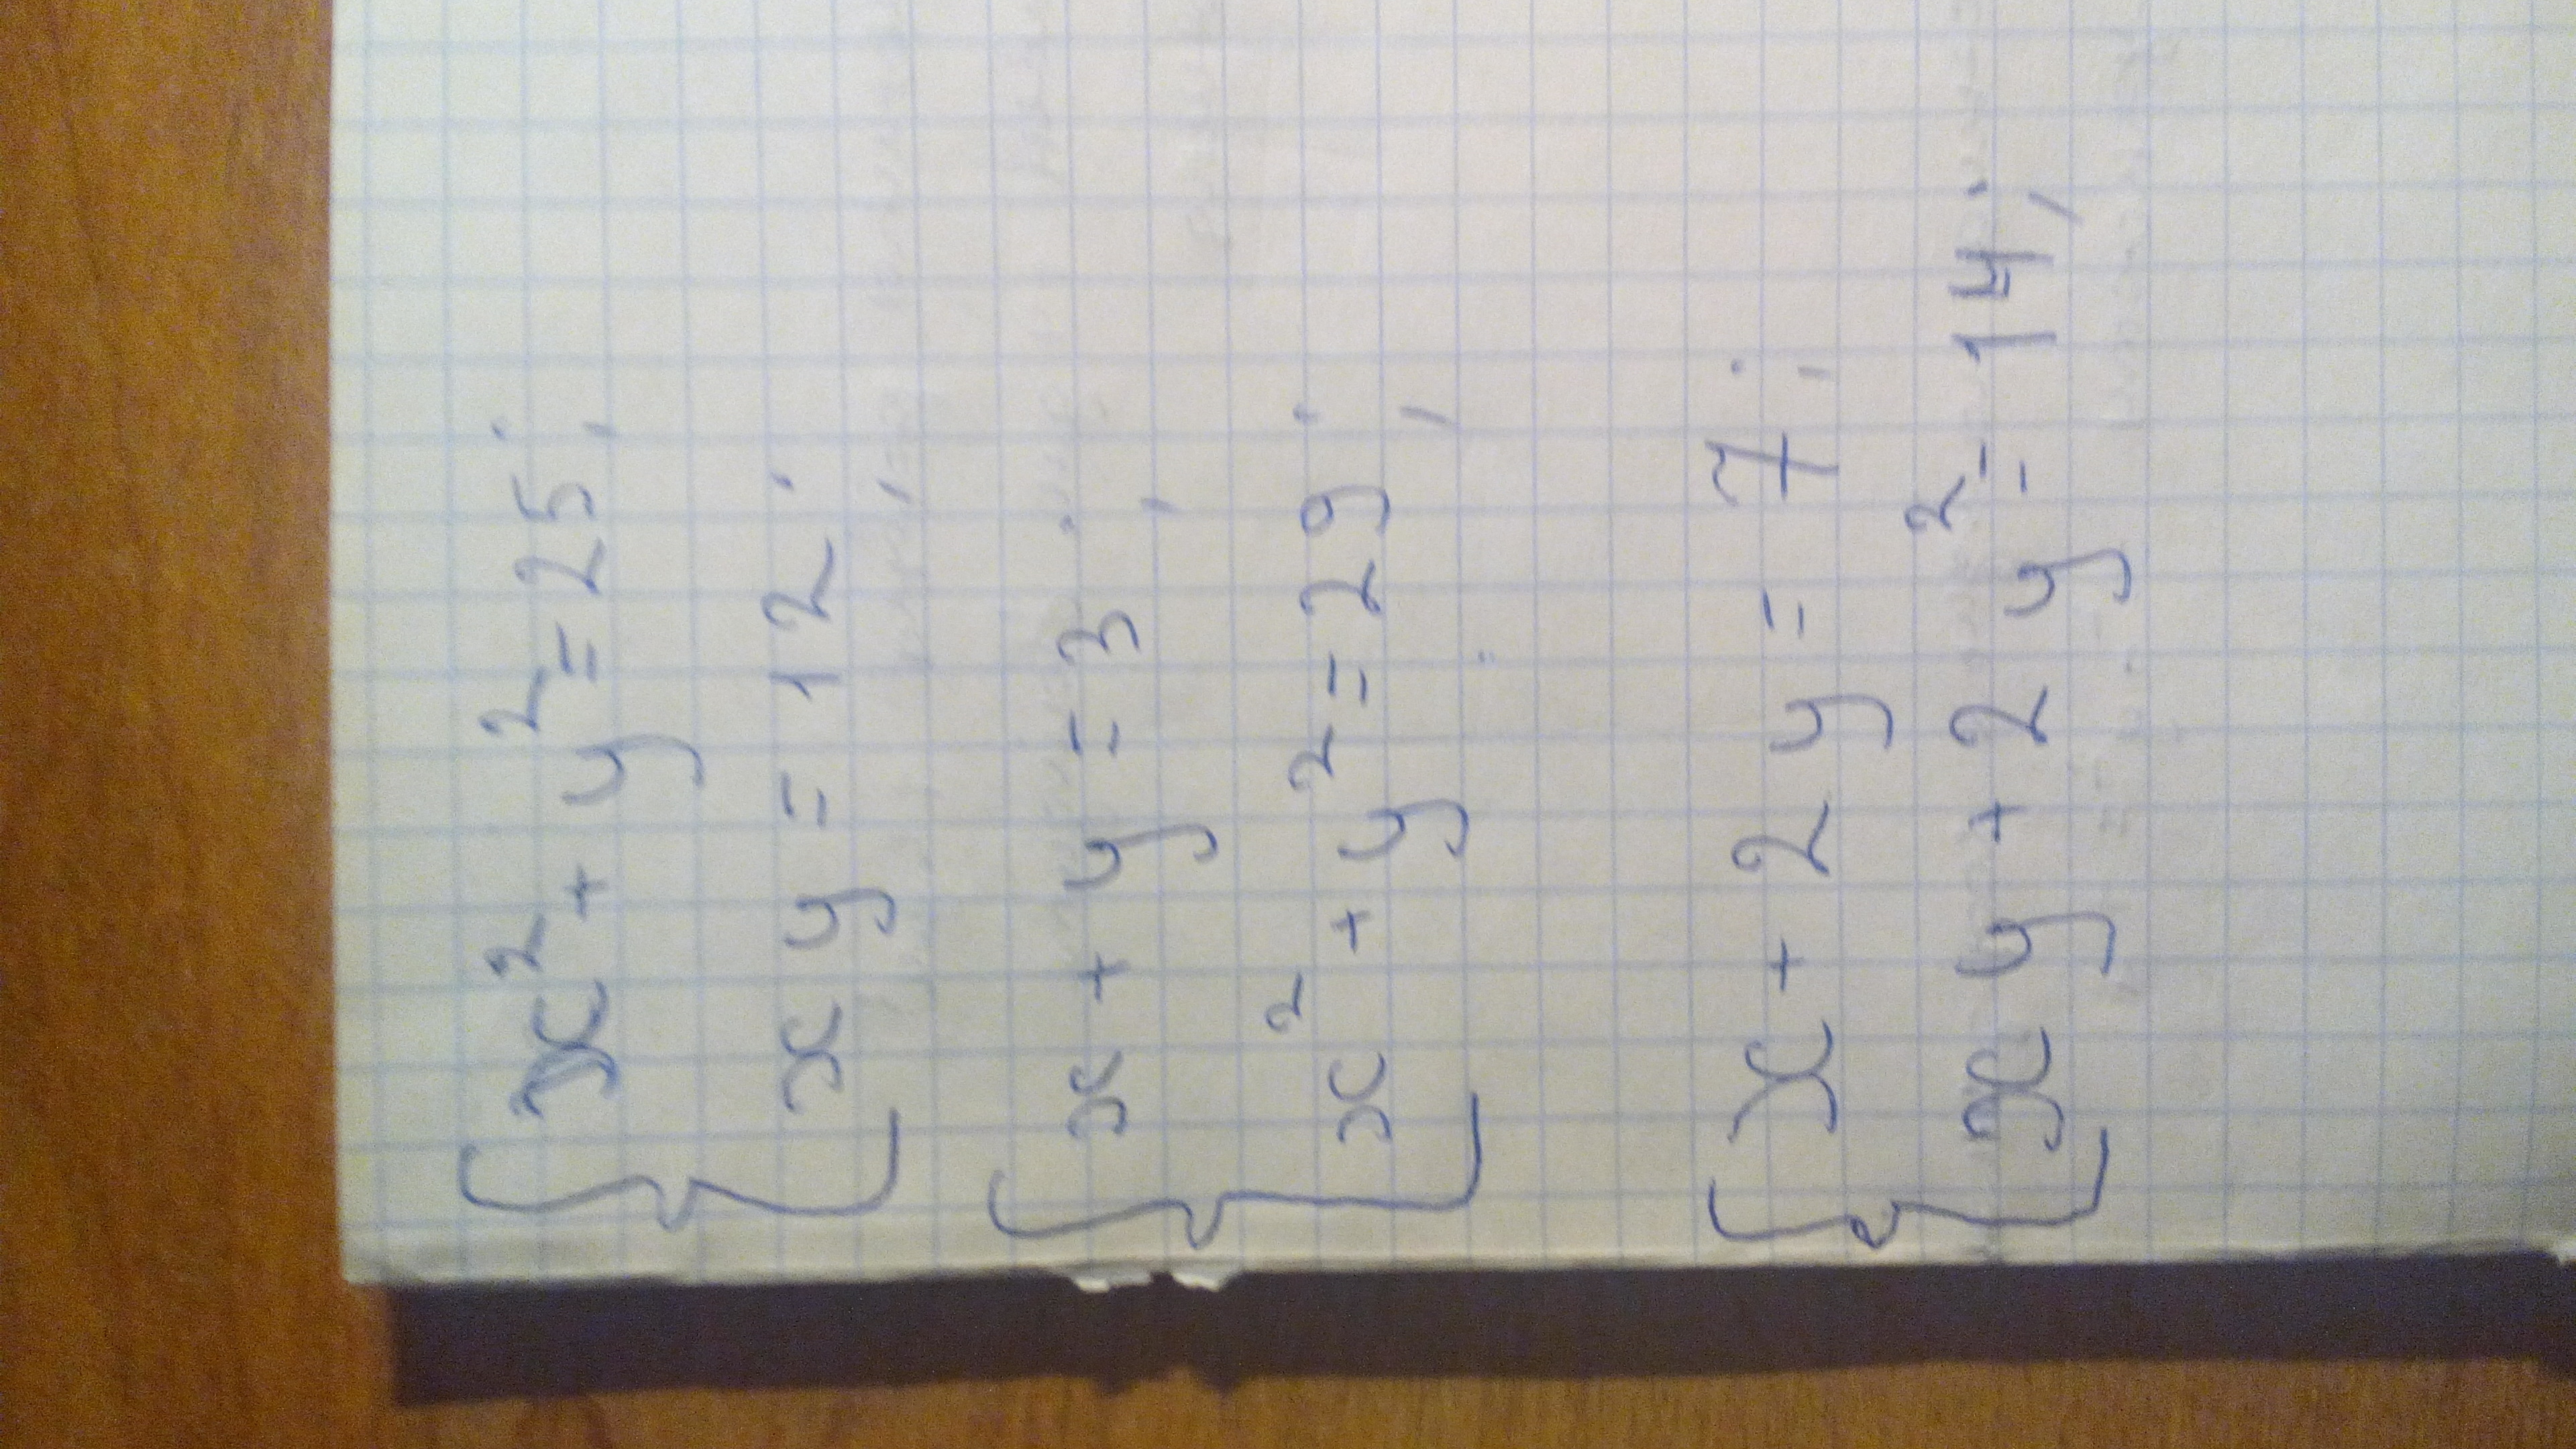 x² + y² = 25;
xy = 12;
x + y = 3;
x² + y² = 29;
x + 2y = 7;
xy + 2y² = 14;